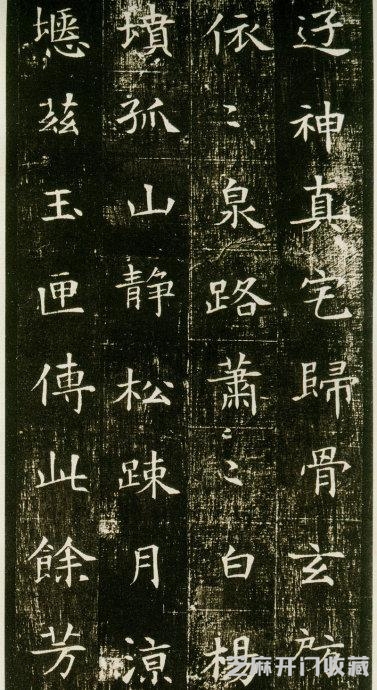 迓神真宅歸骨玄房
依〻泉路蕭〻白楊
墳孤山静松踈月涼
瘞茲玉匣傳此餘芳
芝麻开门收藏